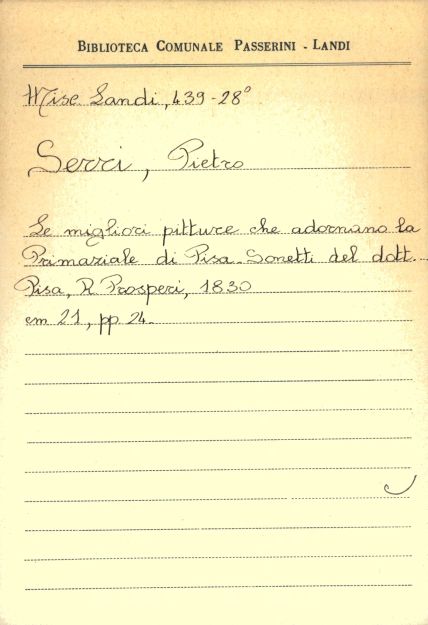 BIBLIOTECA COMUNALE PASSERINI - LANDI
Misc Landi, 439-28°
Serri, Pietro
Le migliori pitture che adornano la
Primaziale di Pisa. Sonetti del dott...
Pisa, R Prosperi, 1830
cm 21, pp 24.